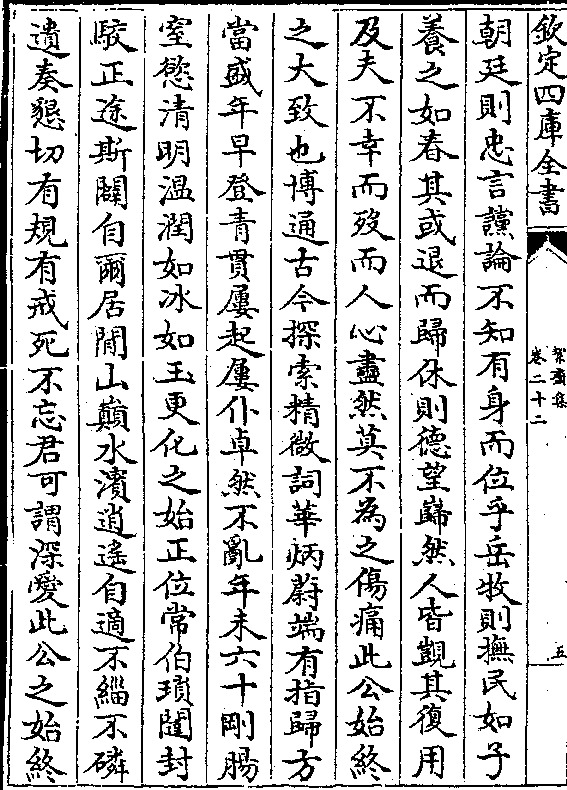 欽定四庫全書
絜齋集
卷二十二
五
朝廷則忠言讜論不知有身而位乎岳牧則撫民如子
養之如春其或退而歸休則德望巋然人皆覬其復用
及夫不幸而歿而人心盡然莫不為之傷痛此公始終
之大致也博通古今探索精微詞華炳蔚端有指歸方
當盛年早登青貫屢起屢仆卓然不亂年未六十剛腸
窒慾清明溫潤如冰如玉更化之始正位常伯瑣闥封
駮正途斯闢自爾居閒山巔水濱逍遙自適不緇不磷
遺奏懇切有規有戒死不忘君可謂深愛此公之始終